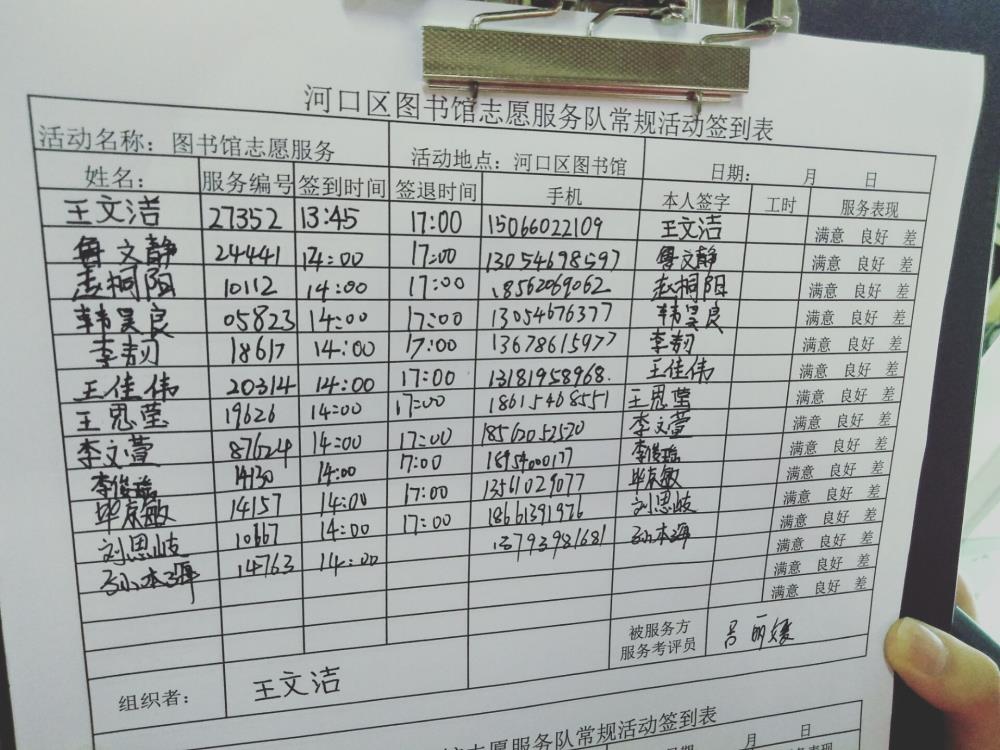 河口区图书馆志愿服务队常规活动签到表
活动名称：图书馆志愿服务 活动地点：河口区图书馆 日期： 月 日
姓名： 服务编号 签到时间 签退时间 手机 本人签字 工时 服务表现
王文洁 27352 13:45 17:00 15066022109 王文洁 满意 良好 差
鲁文静 24441 14:00 17:00 13054698597 鲁文静 满意 良好 差
赵桐阳 10112 14:00 17:00 18562069062 赵桐阳 满意 良好 差
韩昊良 05823 14:00 17:00 13054676377 韩昊良 满意 良好 差
李 18617 14:00 17:00 13678615977 李 满意 良好 差
王佳伟 20314 14:00 17:00 13181958968. 王佳伟 满意 良好 差
王思莹 19626 14:00 17:00 18615468551 王思莹 满意 良好 差
李文萱 87624 14:00 17:00 18562052520 李文萱 满意 良好 差
李俊瑶 14130 14:00 17:00 18954000177 李俊瑶 满意 良好 差
毕京敏 14157 14:00 17:00 13561029077 毕京敏 满意 良好 差
刘思岐 10667 14:00 17:00 18661391976 刘思岐 满意 良好 差
孙本海 14763 14:00 13793981681 孙本海 满意 良好 差
满意 良好 差
满意 良好 差
组织者： 王文洁 被服务方
服务考评员 吕丽媛
书馆志愿服务队常规活动签到表
月 日
表现